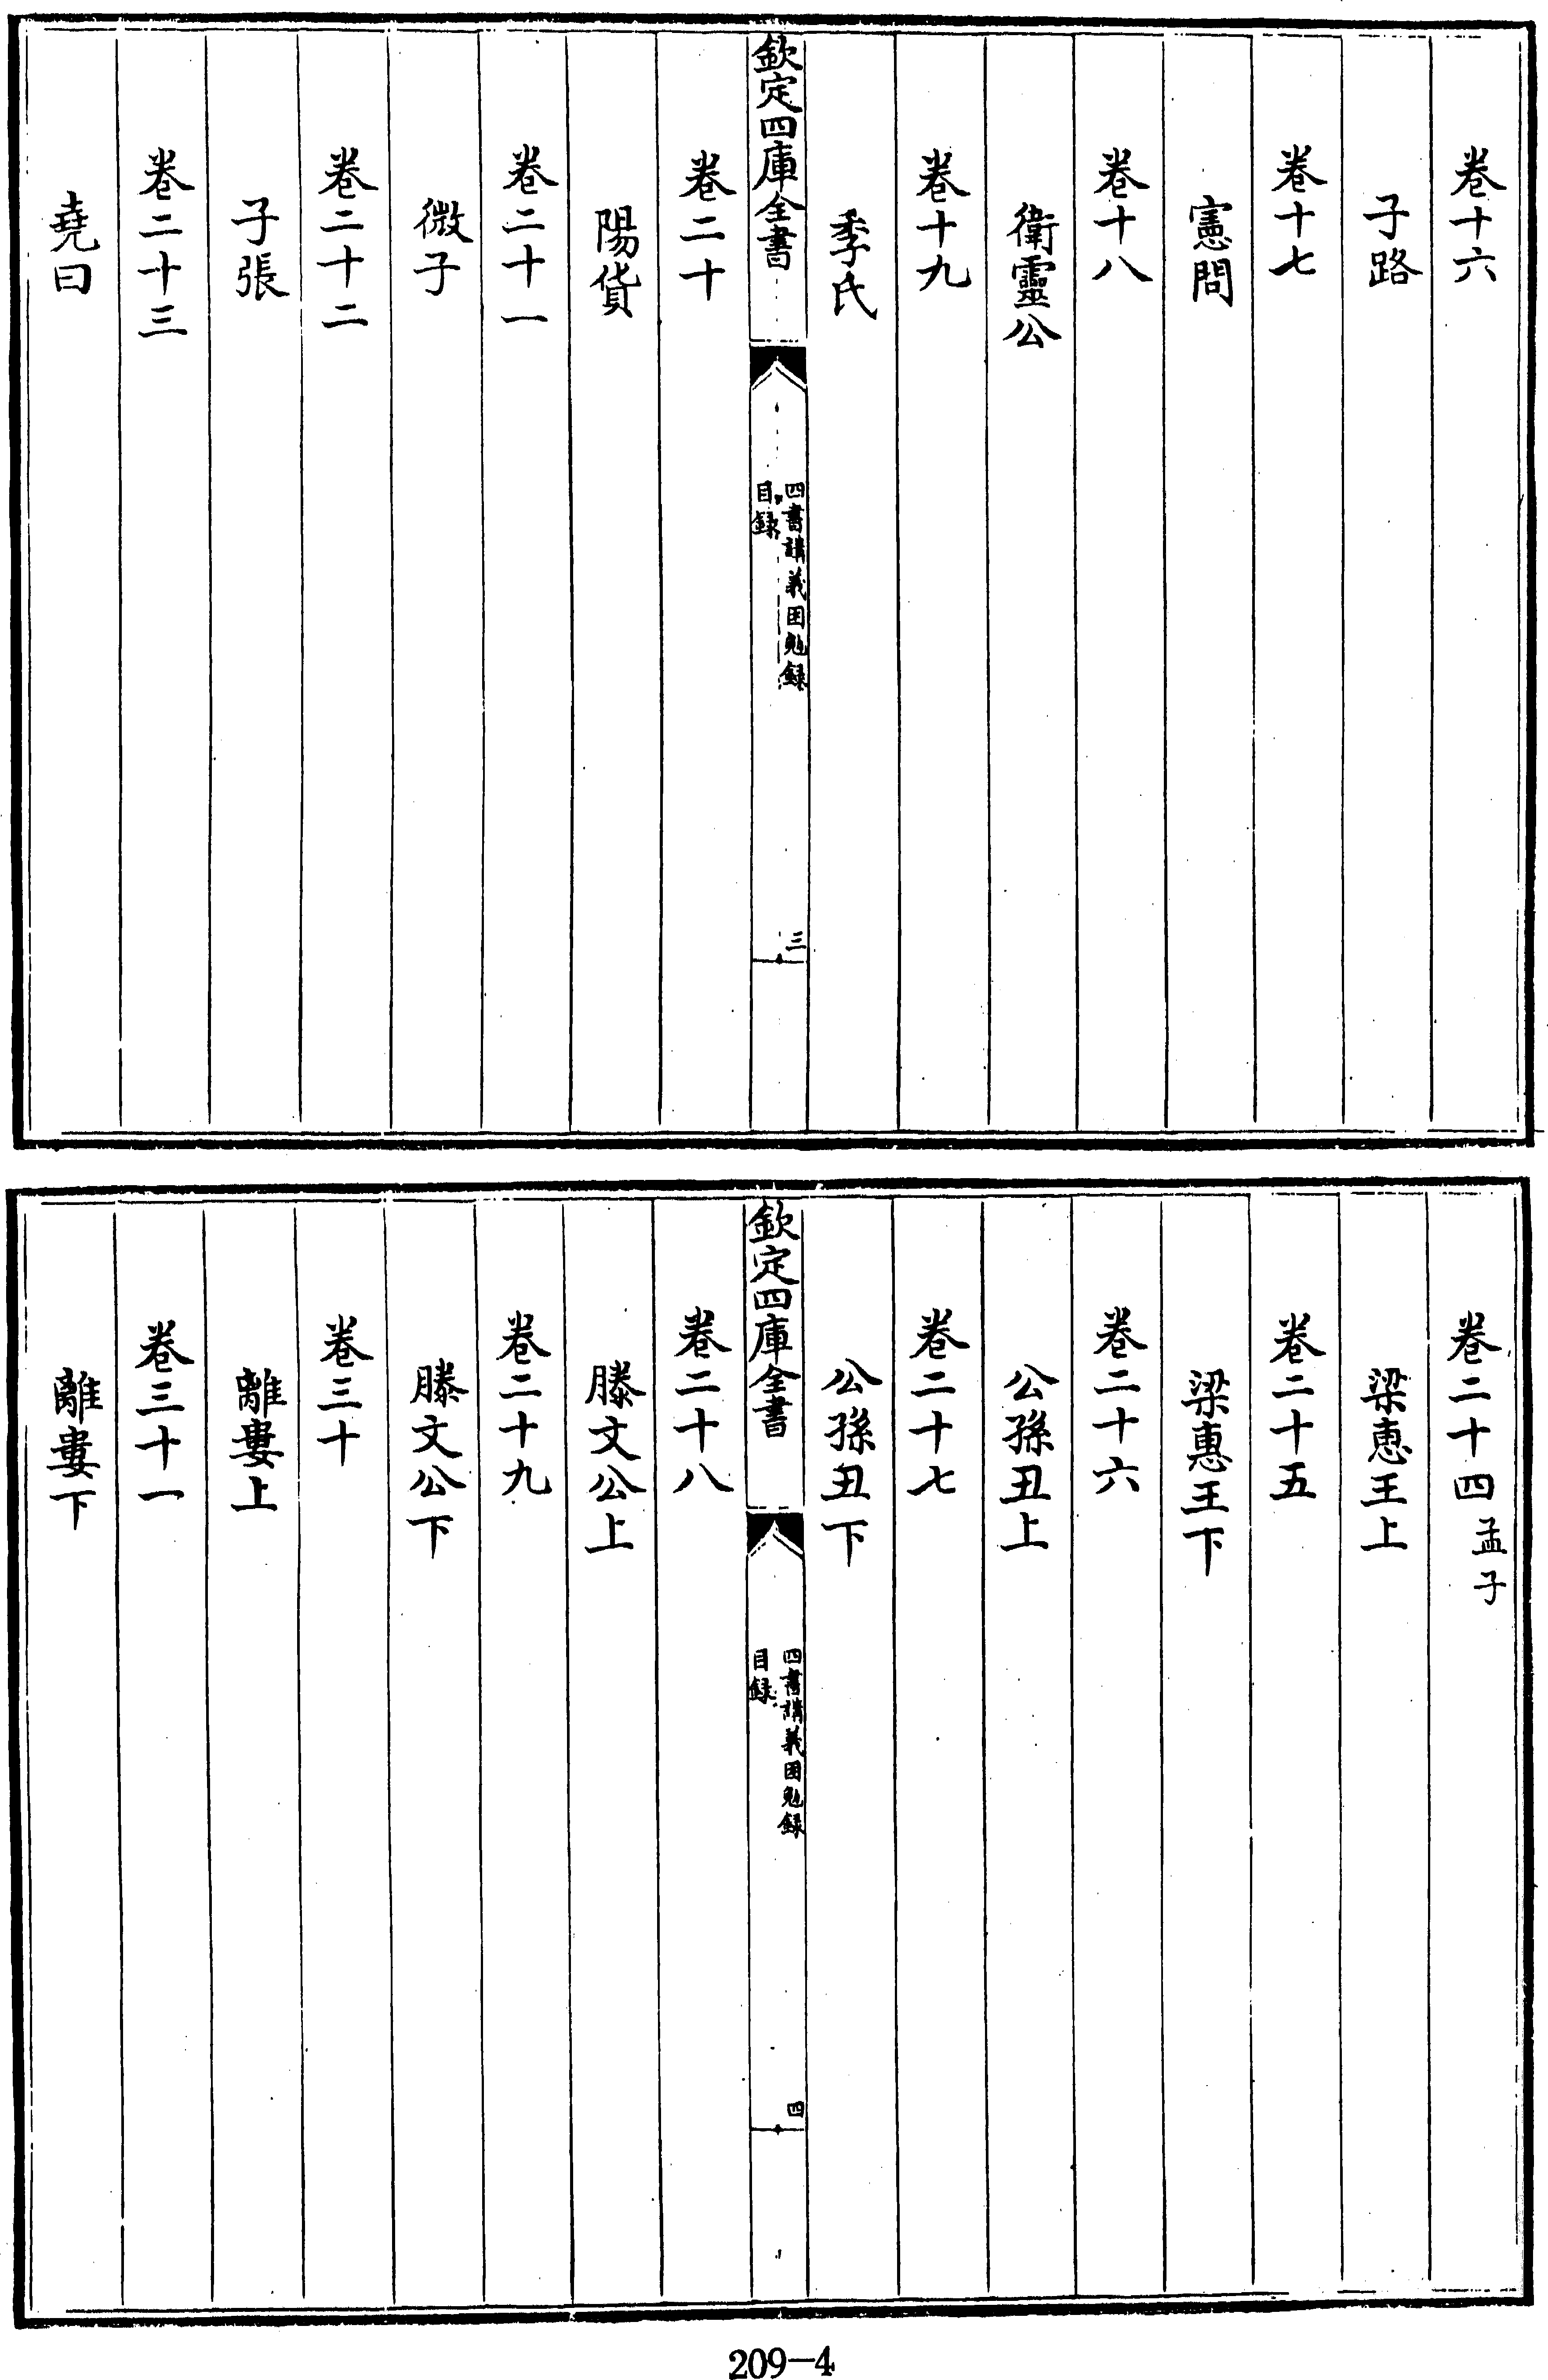 卷十六
子路
卷十七
憲問
卷十八
衛靈公
卷十九
季氏
欽定四庫全書
四書講義困勉録
目録
三
卷二十
陽貨
卷二十一
微子
卷二十二
子張
卷二十三
堯曰
卷二十四 孟子
梁惠王上
卷二十五
梁惠王下
卷二十六
公孫丑上
卷二十七
公孫丑下
欽定四庫全書
四書講義困勉録
目録
四
卷二十八
滕文公上
卷二十九
滕文公下
卷三十
離婁上
卷三十一
離婁下
209-4